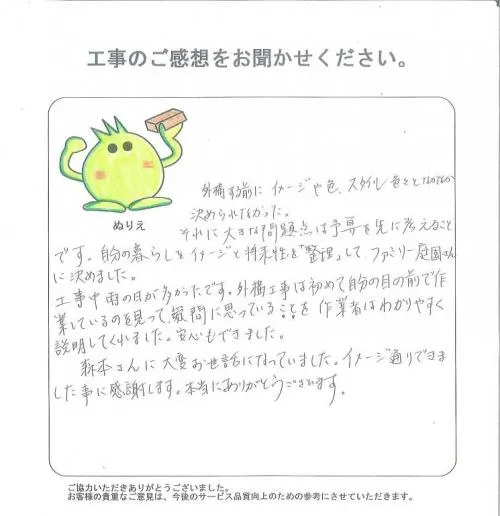 工事のご感想をお聞かせください。
ぬりえ
外構する前に イメージや色、スタイル色々となかなか
決められなかった。
それに大きな問題点は予算を先に考えること
です。自分の暮らしをイメージと将来性を"整理"して、ファミリー庭園さん
に決めました。
工事中雨の日が多かったです。外構工事は初めて自分の目の前で作
業しているのを見って、疑問に思っていることを 作業者はわかりやすく
説明してくれました。安心もできました。
森本さんに大変お世話になっていました。イメージ通りできま
した事に感謝します。本当にありがとうございます。
ご協力いただきありがとうございました。
お客様の貴重なご意見は、今後のサービス品質向上のための参考にさせていただきます。